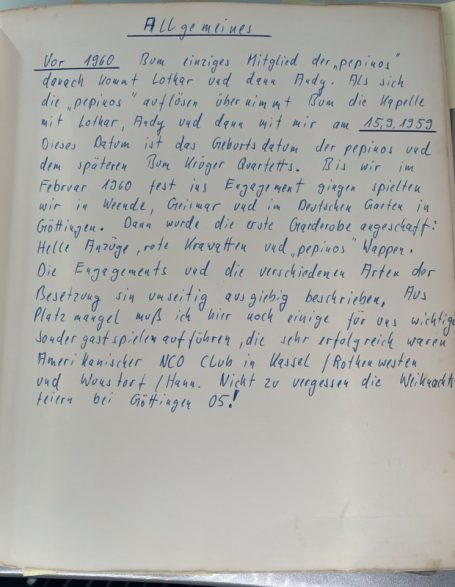 Allgemeines
Vor 1960 Bum einziges Mitglied der „pepinos"
danach kommt Lothar und dann Andy. Als sich
die „pepinos" auflösen übernimmt Bum die Kapelle
mit Lothar, Andy und dann mit mir am 15.9.1959
Dieses Datum ist das Geburtsdatum der pepinos und
dem späteren Bum Krüger Quartetts. Bis wir im
Februar 1960 fest ins Engagement gingen spielten
wir in Weende, Geismar und im Deutschen Garten in
Göttingen. Dann wurde die erste Garderobe angeschaft:
Helle Anzüge, rote Kravatten und „pepinos" Wappen.
Die Engagements und die verschiedenen Arten der
Besetzung sin umseitig ausgiebig beschrieben. Aus
Platzmangel muß ich hier noch einige für uns wichtige
Sondergastspielen aufführen, die sehr erfolgreich waren
Amerikanischer NCO Club in Kassel / Rothenwesten
und Wunstorf / Hann. Nicht zu vergessen die Weihnachts
feiern bei Göttingen 05!